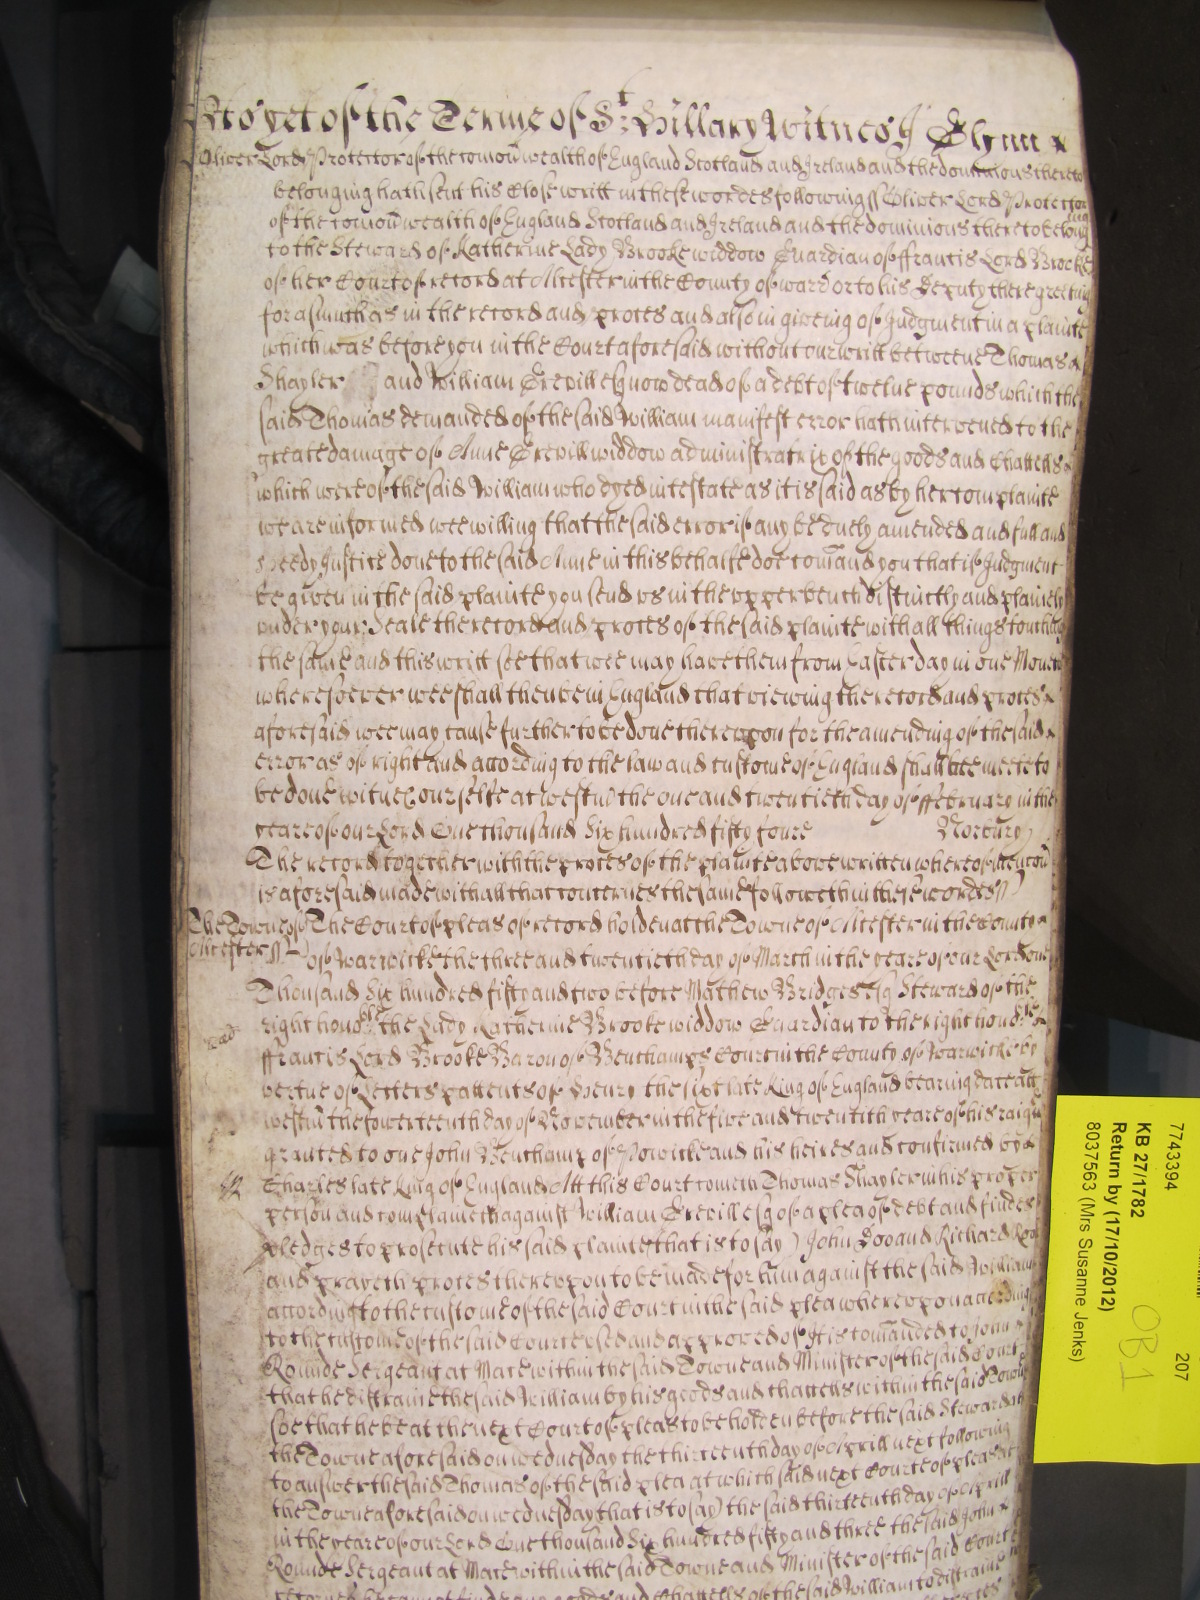 As yet of the Terme of St: Hillary Witnes J Glynn
Oliver Lord Protector of the comon wealth of England Scotland and Ireland and the dominions thereto
belonging hath sent his Close writt in these wordes following ss Oliver Lord Protector
of the comon wealth of England Scotland and Ireland and the dominions thereto belonging
to the Steward of Katherine Lady Brooke widdow Guardian of ffrancis Lord Brooke
of her Court of record at Alcester in the County of warr or to his Deputy there greeting
forasmuch as in the record and proces and also in giveing of Judgment in a plainte
which was before you in the Court aforesaid without our writt betweene Thomas
Shayler and William Grevill esq now dead of a debt of twelve pounds which the
said Thomas demanded of the said William manifest error hath intervened to the
greate damage of Anne Grevill widdow administratrix of the goods and Chattells
which were of the said William who dyed intestate as it is said as by her complainte
we are informed wee willing that the said error if any be duely amended and full and
speedy Justice done to the said Anne in this behalfe doe comand you that if Judgment
be given in the said plainte you send us in the upper bench distinctly and plainely
under your Seale the record and proces of the said plainte with all things touching
the same and this writt soe that wee may have them from Easter day in one Moneth
wheresoever wee shall then be in England that viewing the record and proces
aforesaid wee may cause further to be done thereupon for the amending of the said
error as of right and according to the law and custome of England shall bee meete to
be done witnes ourselfe at westm the one and twentieth day of ffebruary in the
yeare of our Lord One thousand Six hundred fifty foure Norbury
The record together with the proces of the plainte above written whereof mencon
is aforesaid made with all that concernes the same followeth in these wordes ss
The Towne of The Court of pleas of record holden at the Towne of Alcester in the County
Alcester ss of Warwicke the three and twentieth day of March in the yeare of our Lord one
Thousand Six hundred fifty and two before Mathew Bridges esq Steward of the
right honoble the Lady Katherine Brooke widdow Guardian to the right honoble
ffrancis Lord Brooke Baron of Beuchamps Court in the County of Warwicke by
vertue of Letters pattents of Henry the sixt late King of England bearing date att
westm the fowerteenth day of November in the five and twentith yeare of his raigne
granted to one John Beuchamp of Powicke and his heires and confirmed by
Charles late King of England Att this Court cometh Thomas Shayler in his proper
person and complaineth against William Grevill esq of a plea of debt and findes
pledges to prosecute his said plainte that is to say John Doo and Richard Roo
and prayeth proces thereupon to be made for him against the said William
according to the custome of the said Court in the said plea whereupon according
to the custome of the said Court used and approved of It is comanded to John
Rounde Sergeant at Mace within the said Towne and Minister of the said Court
that he distraine the said William by his goods and chattells within the said Towne
soe that he be at the next Court of pleas to be holden before the said Steward att
the Towne aforesaid on wednesday the thirteenth day of Aprill next following
to answer the said Thomas of the said plea at which said next Courte of pleas at
the Towne aforesaid on wednesday that is to say the said thirteenth day of Aprill
in the yeare of our Lord One thousand Six hundred fifty and three the said John
Rounde Sergeant at Mace within the said Towne and Minister of the said Court
goods and Chattells of the said William to distraine
7743394 207
KB 27/1782
Return by (17/10/2012)
8037563 (Mrs Susanne Jenks)
OB 1